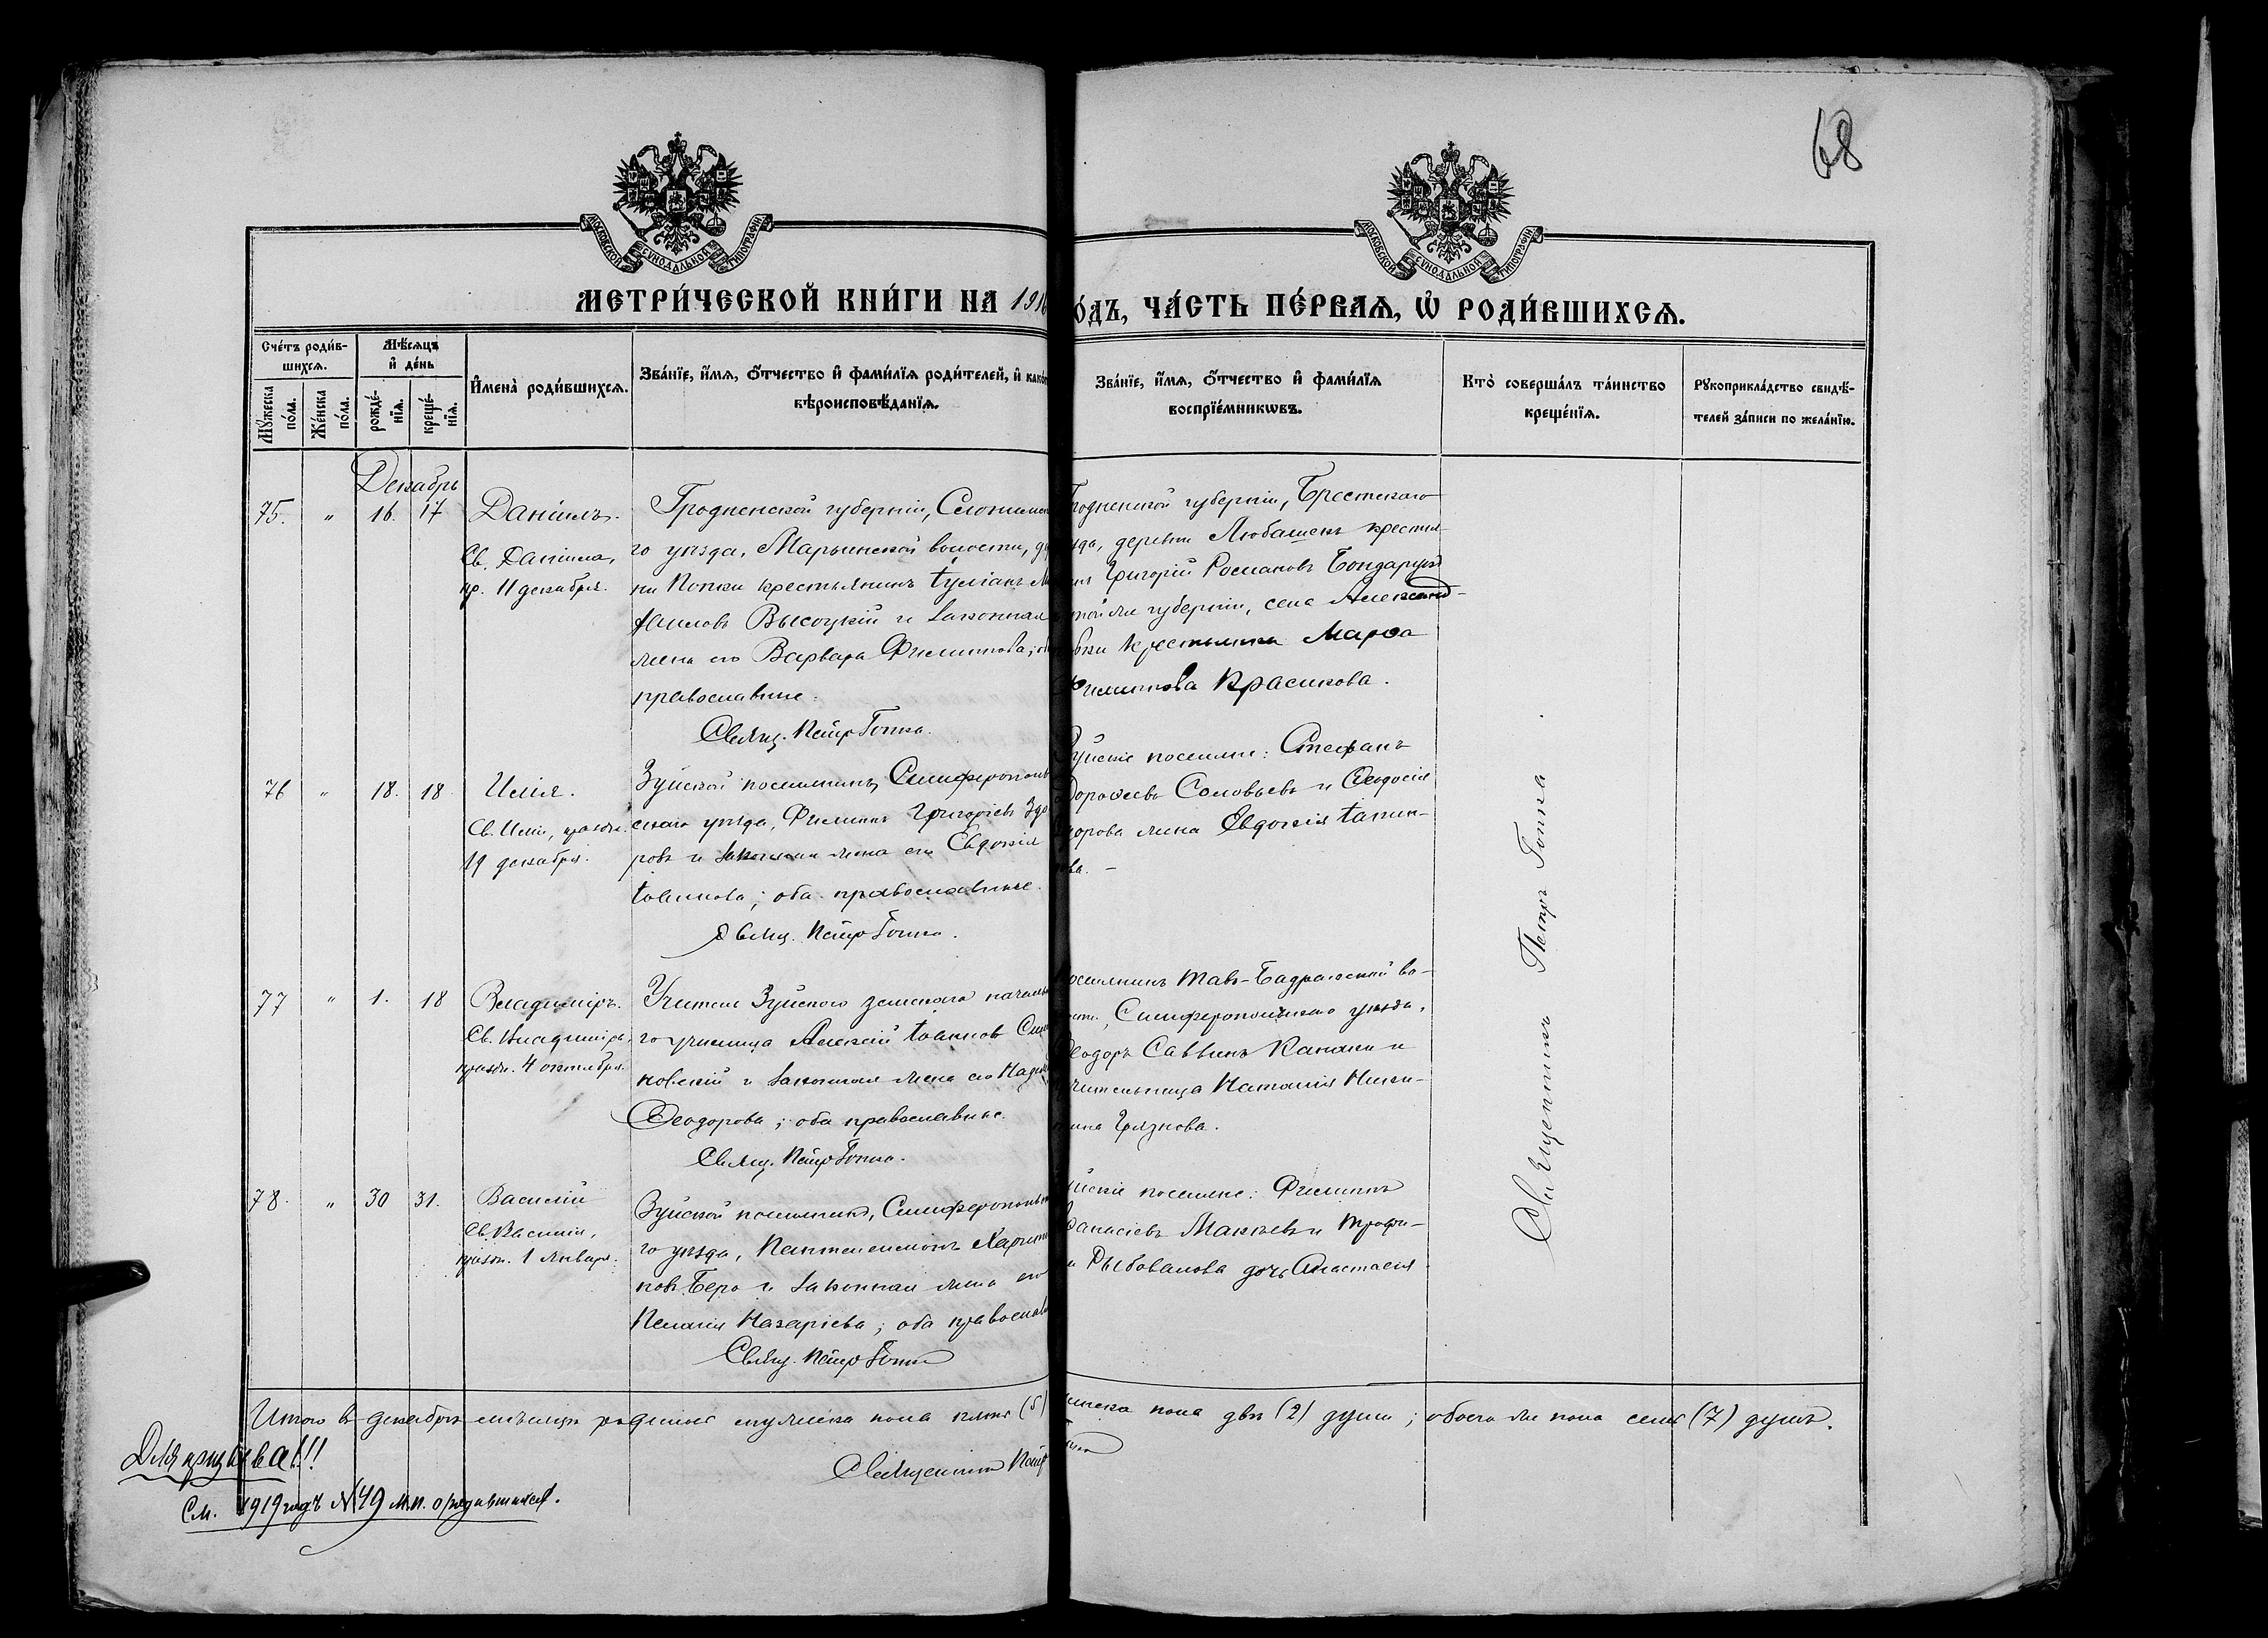 68
МОСКОВСКОЙ СѴНОДАЛЬНОЙ ТИПОГРАФІИ
МОСКОВСКОЙ СѴНОДАЛЬНОЙ ТИПОГРАФІИ
МЕТРИ́ЧЕСКОЙ КНИ́ГИ НА 1916
О́ДЪ, ЧА́СТЬ ПЕ́РВАѦ, Ѡ҆ РОДИ́ВШИХСѦ.
Сче́тъ роди́в-
шихсѧ.
Мꙋ́жеска по́ла.
Же́нска по́ла.
Мѣ́сѧцъ
и҆ де́нь
рожде́-
нїѧ.
креще́-
нїѧ.
И҆мена̀ роди́вшихсѧ.
Зва́нїе, и҆́мѧ, ѻ҆́тчество и҆ фами́лїѧ роди́телей, и҆ како́
вѣроисповѣ́данїѧ.
Зва́нїе, и҆́мѧ, ѻ҆́тчество и҆ фами́лїѧ
воспрїе́мникѡвъ.
Кто̀ соверша́лъ та́инство
креще́нїѧ.
Рꙋкоприкла́дство свидѣ́-
телей за́писи по жела́нїю.
Декабрь
75. " 16. 17
Даніилъ.
Св. Даніила,
пр. 11 декабря.
Гродненской губерніи, Слонимск
го уѣзда, Марьинской волости, д
ни Попки крестьянинъ Іуліанъ
Высоцкій и законная
жена его Варвара Филиппова;
православные.
Свящ. Петръ Гопка.
родненской губерніи, Брестскаго
зда, деревни Любашекъ крестья-
нъ Григорій Романовъ Бондарук
губерніи, села Александ-
вки крестьянка Марѳа
Филиппова Красикова.
76 " 18. 18
Илія.
Св. Иліи, праздн.
19 декабря.
Зуйской поселянинъ, Симферополь
скаго уѣзда, Филиппъ Григорьевъ Здо
ровъ и законная жена его Евдокія
Іоаннова; оба православные.
Свящ. Петръ Гопка.
Зуйскіе поселяне: Стефанъ
Дороѳеевъ Соловьевъ и Ѳеодосія
дорова жена Евдокія
ова. –
77 " 1. 18
Владиміръ.
Св. Владиміра,
праздн. 4 октября.
Учитель Зуйскаго земскаго началь
го училища Алексій Іоанновъ
ковскій и законная жена его Наде
Ѳеодорова; оба православные.
Свящ. Петръ Гопка.
поселянинъ Тавъ-Бадракской во-
ости, Симферопольскаго уѣзда,
Ѳеодоръ Саввинъ Канаки и
учительница Наталія Ники-
тина Грязнова.
78. " 30 31.
Василій
Св. Василія,
праздн. 1 Января.
Зуйской поселянинъ, Симферопольск
го уѣзда, Пантелеимонъ Харито
новъ Беро и законная жена его
Пелагія Назаріева; оба православ
Свящ. Петръ Гопка
уйскіе поселяне: Филиппъ
Аѳанасіевъ Макѣевъ и Трофи-
Рыбовалова дочь Анастасія
Священникъ Петръ Гопка.
Итого въ декабрѣ мѣсяцѣ родилось мужеска пола пять (5)
женска пола двѣ (2) души; обоего же пола семь (7) душъ.
Священникъ Петр
Для призыва!!!
См. 1919 годъ №49 м.п. о родившихся.